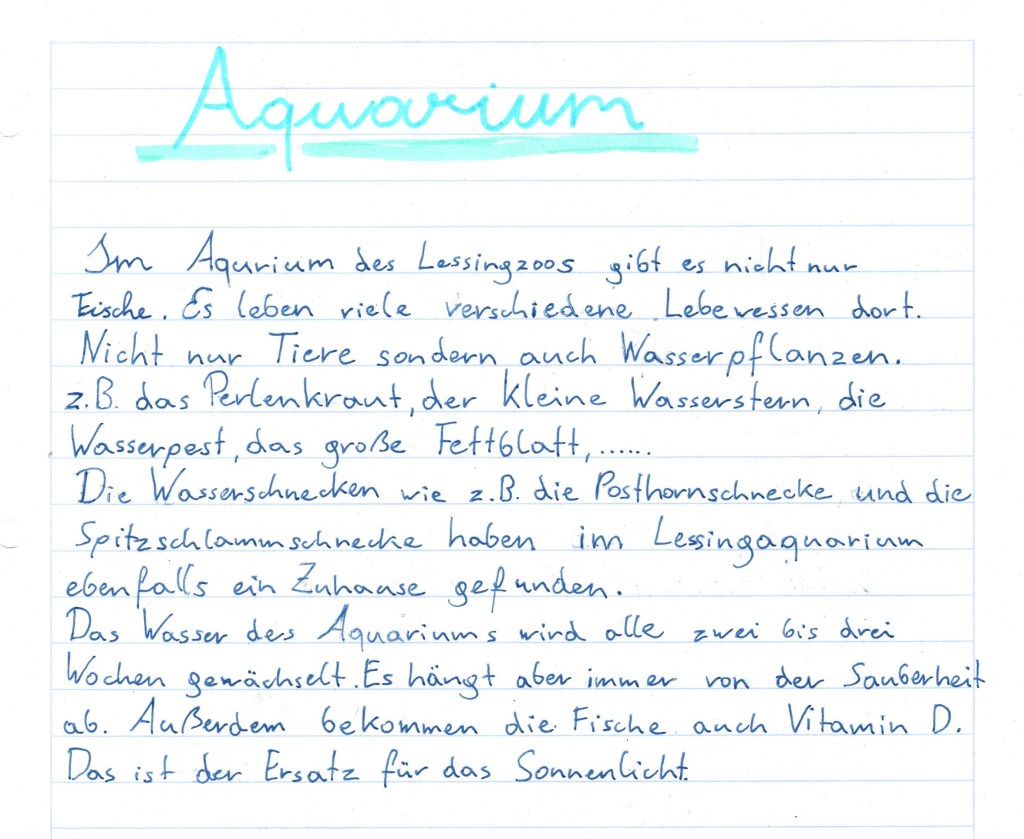 Aquarium
Im Aqurium des Lessingzoos gibt es nicht nur
Fische. Es leben viele verschiedene Lebewessen dort.
Nicht nur Tiere sondern auch Wasserpflanzen.
z.B. das Perlenkraut, der kleine Wasserstern, die
Wasserpest, das große Fettblatt,......
Die Wasserschnecken wie z.B. die Posthornschnecke und die
Spitzschlammschnecke haben im Lessingaquarium
ebenfalls ein Zuhause gefunden.
Das Wasser des Aquariums wird alle zwei bis drei
Wochen gewächselt. Es hängt aber immer von der Sauberheit
ab. Außerdem bekommen die Fische auch Vitamin D.
Das ist der Ersatz für das Sonnenlicht.